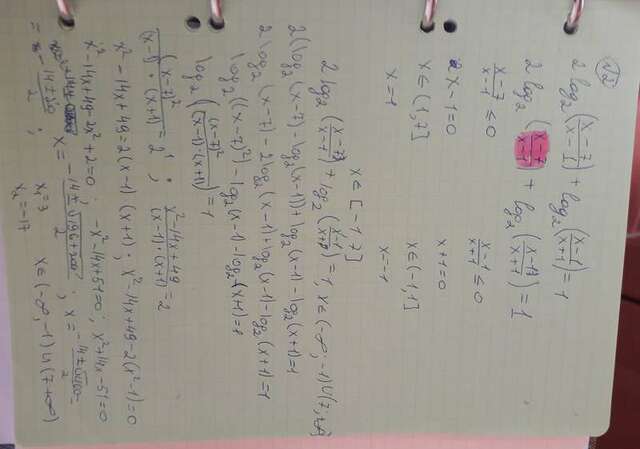 №2
2 log₂((x-7)/(x-1)) + log₂((x-1)/(x+1)) = 1
2 log₂((x-7)/(x-1)) + log₂((x-1)/(x+1)) = 1
(x-7)/(x-1) ≤ 0 (x-1)/(x+1) ≤ 0
x-1=0 x+1=0
x∈(1,7] x∈(-1,1]
x=1 x=-1
x∈[-1,7]
2 log₂((x-7)/(x-1)) + log₂((x-1)/(x+1)) = 1, x∈(-∞,-1)∪(7,+∞)
2(log₂(x-7)-log₂(x-1))+log₂(x-1)-log₂(x+1)=1
2log₂(x-7)-2log₂(x-1)+log₂(x-1)-log₂(x+1)=1
log₂((x-7)²)-log₂(x-1)-log₂(x+1)=1
log₂((x-7)²/((x-1)·(x+1)))=1
(x-7)²/((x-1)·(x+1))=2¹; (x²-14x+49)/((x-1)·(x+1))=2
x²-14x+49=2(x-1)(x+1); x²-14x+49-2(x²-1)=0
x²-14x+49-2x²+2=0; -x²-14x+51=0; x²+14x-51=0
x=(-14±√(196+204))/2; x=(-14±√400)/2
=(-14±20)/2; x₁=3 x∈(-∞,-1)∪(7,+∞)
x₂=-17